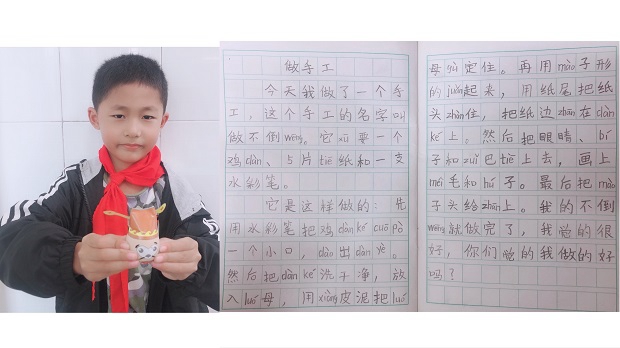 做手工
今天我做了一个手
工，这个手工的名字叫
做不倒wēng。它xū要一个
鸡dàn、5片tiē纸和一支
水彩笔。
它是这样做的：先
用水彩笔把鸡dàn ké cuō pò
一个小口，dào出dàn yè。
然后把dàn ké洗干净，放
入luó母，用xiàng皮泥把luó
母gù定住。再用mào子形
的juǎn起来，用纸尾把纸
头zhān住，把纸边zhān在dàn
ké上。然后把眼睛、bí
子和zuǐ巴tiē上去，画上
méi毛和hú子。最后把mào
子头给zhān上。我的不倒
wēng就做完了，我觉的很
好，你们觉的我做的好
吗？